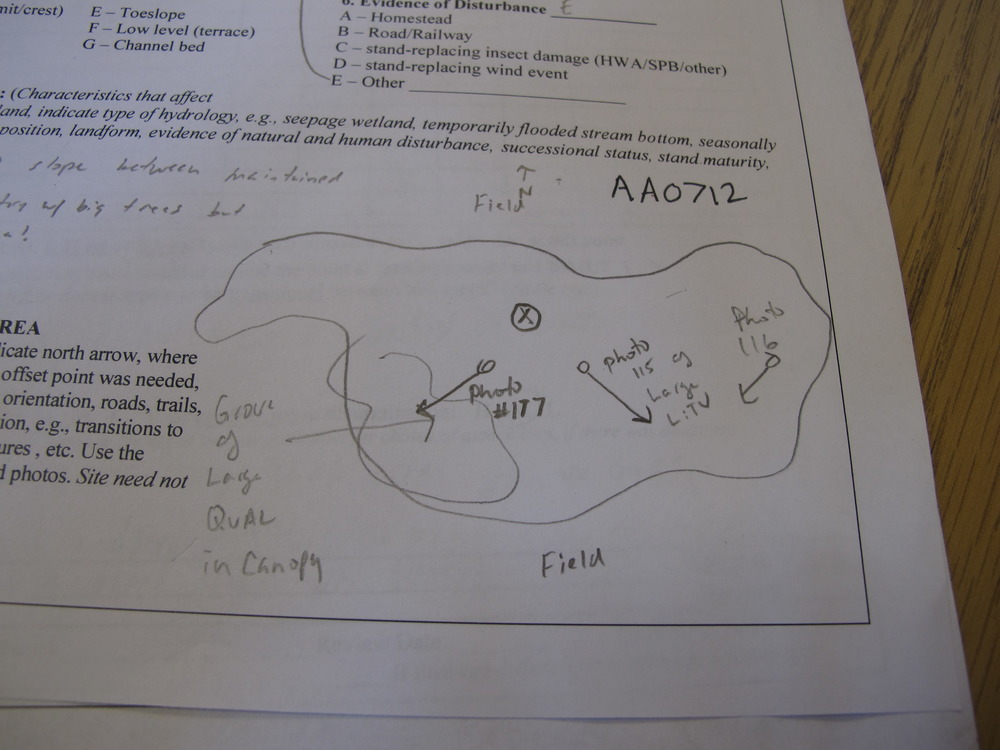 nit/crest)
E – Toeslope
F – Low level (terrace)
G – Channel bed
6. Evidence of Disturbance E
A – Homestead
B – Road/Railway
C – stand-replacing insect damage (HWA/SPB/other)
D – stand-replacing wind event
E – Other
: (Characteristics that affect
land, indicate type of hydrology, e.g., seepage wetland, temporarily flooded stream bottom, seasonally
position, landform, evidence of natural and human disturbance, successional status, stand maturity,
slope between maintained
w/ big trees but
a!
↑
N
Field
AA0712
X
Photo
116
photo
115 of
Large
LiTU
Photo
#117
REA
licate north arrow, where
offset point was needed,
orientation, roads, trails,
ion, e.g., transitions to
ures , etc. Use the
d photos. Site need not
Grove
of
Large
QUAL
in Canopy
Field
Review Date